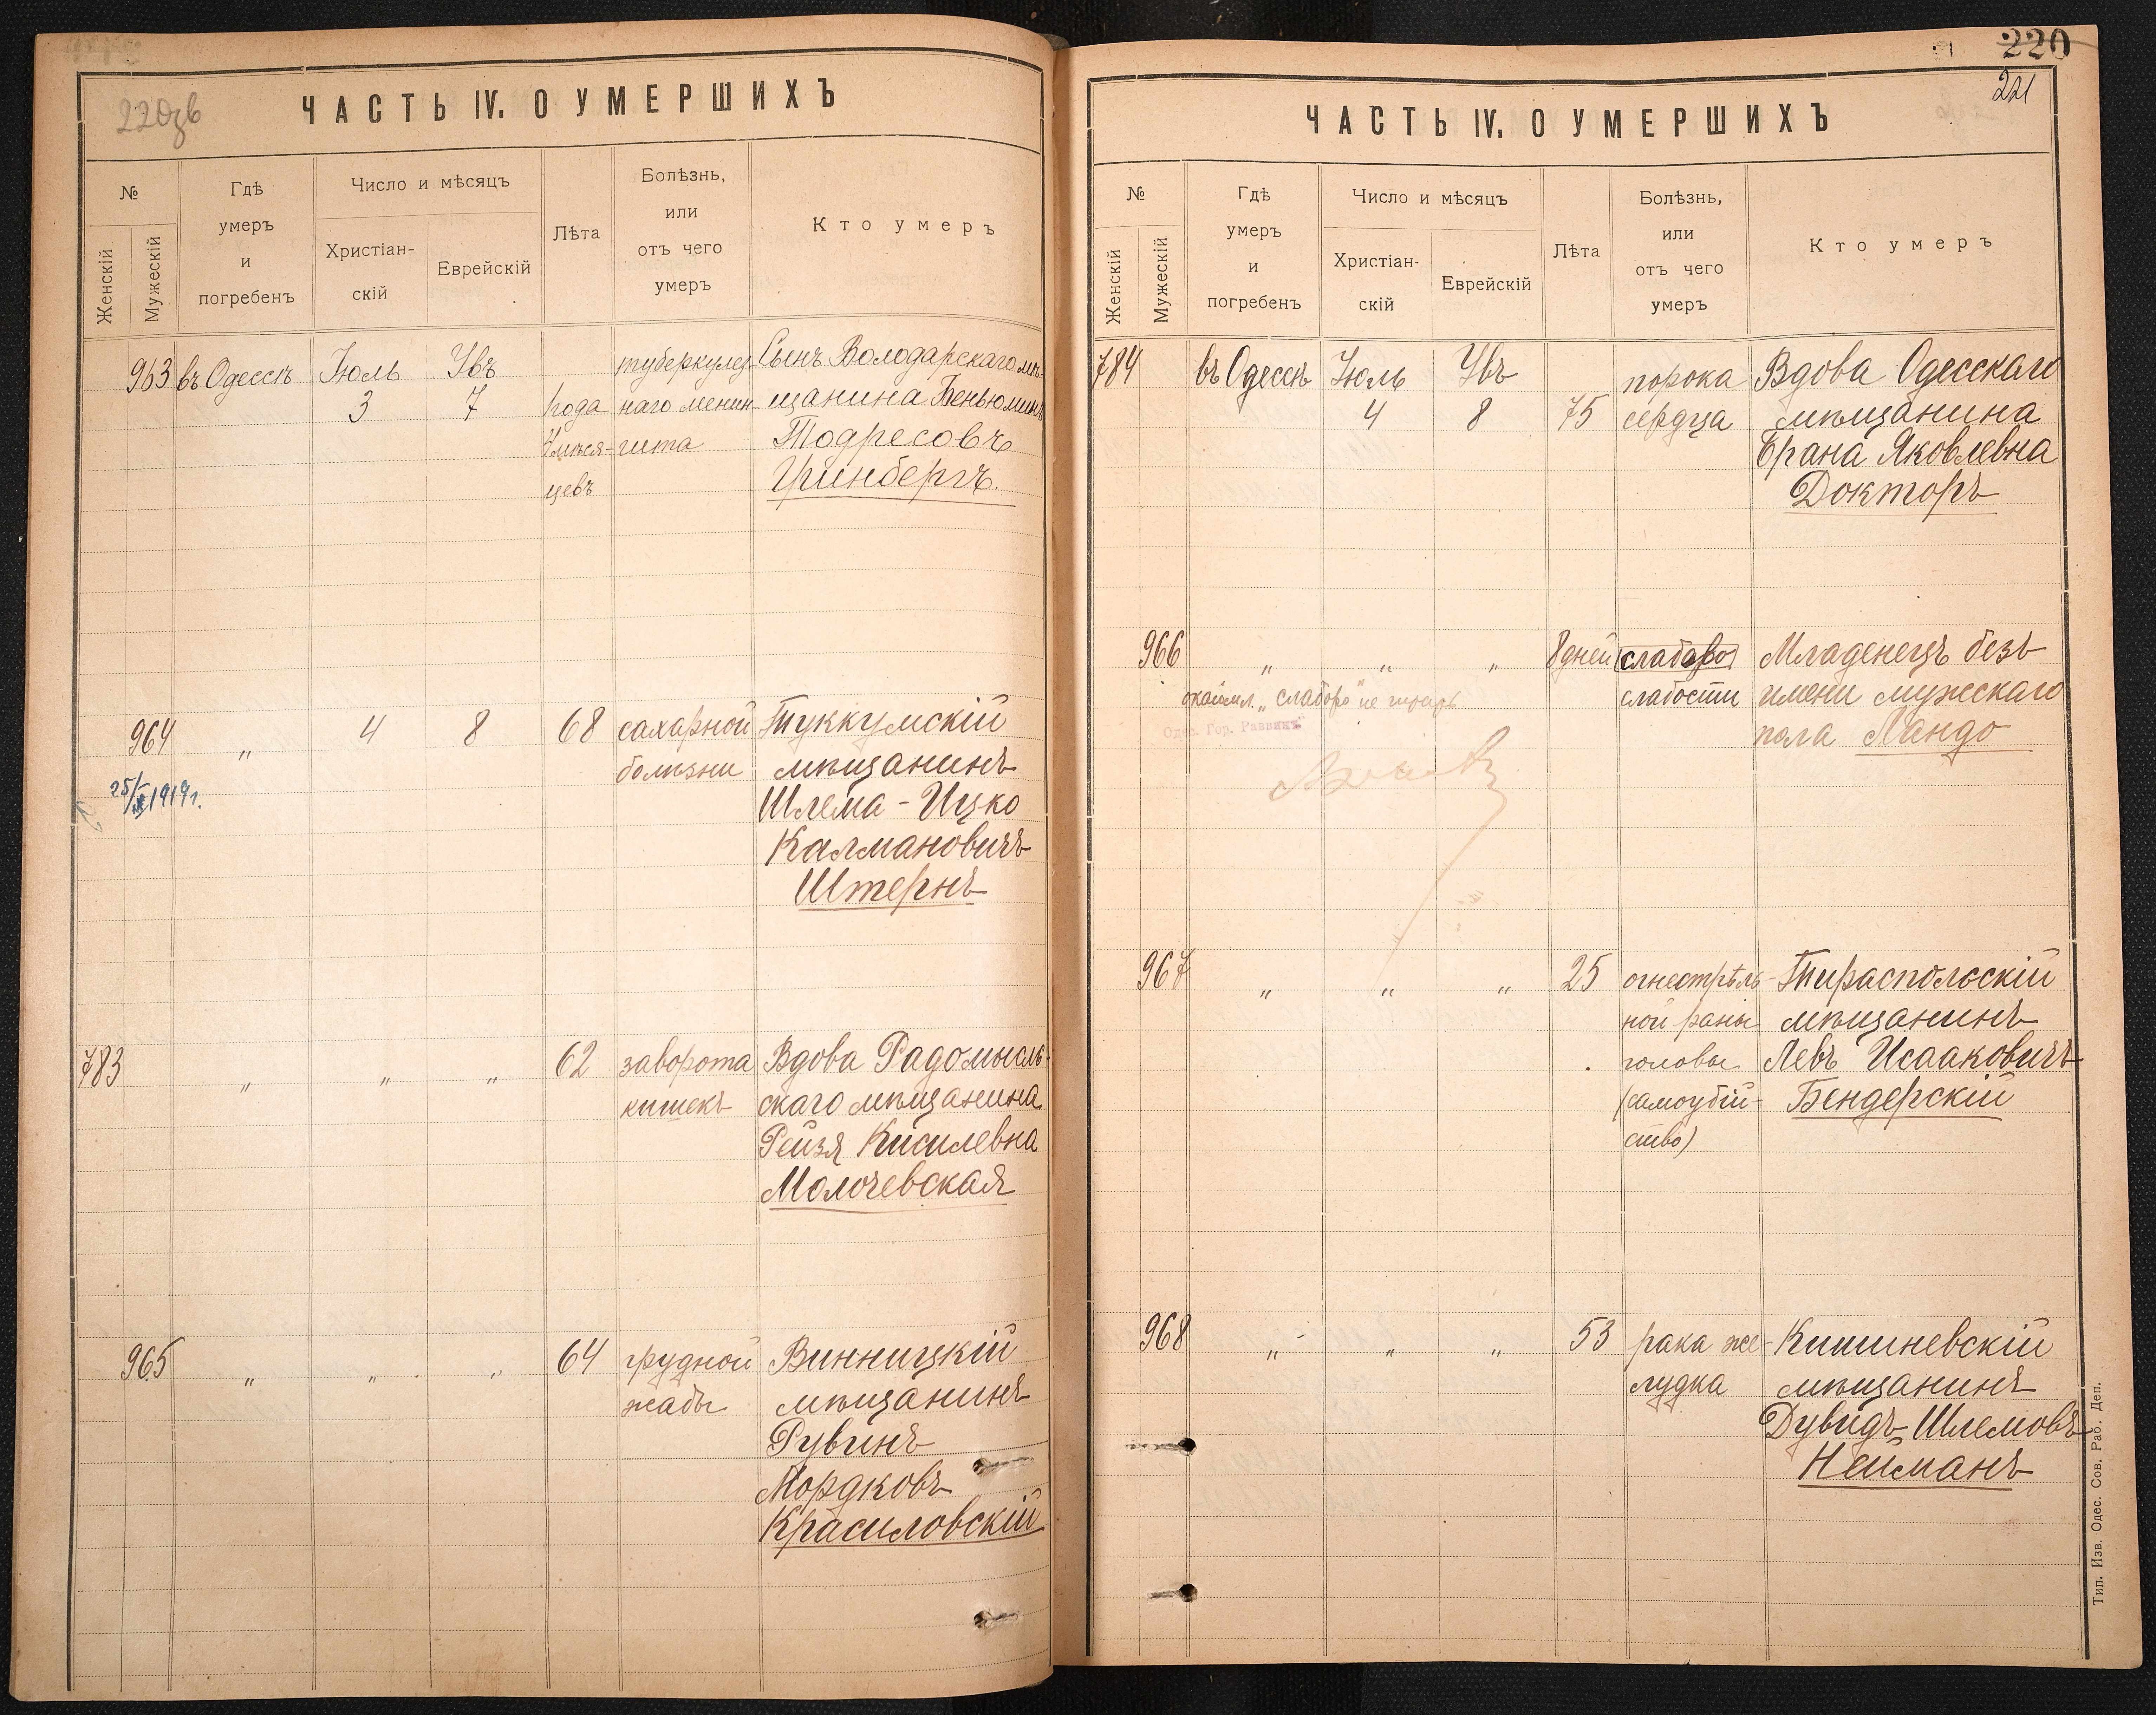 220зв
ЧАСТЬ IV. О УМЕРШИХЪ
№
Женскій
Мужескій
Гдѣ
умеръ
и
погребенъ
Число и мѣсяцъ
Христіан-
скій
Еврейскій
Лѣта
Болѣзнь,
или
отъ чего
умеръ
Кто умеръ
963 въ Одессѣ Іюль Увъ туберкулез- Сынъ Володарскаго мѣ-
3 7 года наго менин- щанина Беньюминъ
мѣся- гита Тодресовъ
цевъ Гринбергъ.
964 " 4 8 68 сахарной Туккумскій
болѣзни мѣщанинъ
25/X 1919г. Шлема-Ицко
Калмановичъ
Штернъ
783 " " " 62 заворота Вдова Радомысль-
кишекъ скаго мѣщанина
Рейзя Кисилевна
Молочевская
965 " " " 64 грудной Винницкій
жабы мѣщанинъ
Рувинъ
Мордковъ
Красиловскій
220
221
ЧАСТЬ IV. О УМЕРШИХЪ
№
Женскій
Мужескій
Гдѣ
умеръ
и
погребенъ
Число и мѣсяцъ
Христіан-
скій
Еврейскій
Лѣта
Болѣзнь,
или
отъ чего
умеръ
Кто умеръ
784 въ Одессѣ Іюль Увъ порока Вдова Одесскаго
4 8 75 сердца мѣщанина
Брана Яковлевна
Докторъ
966 " " " 8 дней слабаго Младенецъ безъ
слабости имени мужескаго
окаймл. „слабого" не читать
Одес. Гор. Раввинъ
пола Ландо
967 " " " 25 огнестрѣль- Тираспольскій
ной раны мѣщанинъ
головы Левъ Исааковичъ
(самоубій- Бендерскій
ство)
968 " " " 53 рака же- Кишиневскій
лудка мѣщанинъ
Дувидъ Шлемовъ
Нейманъ
Тип. Изв. Одес. Сов. Раб. Деп.